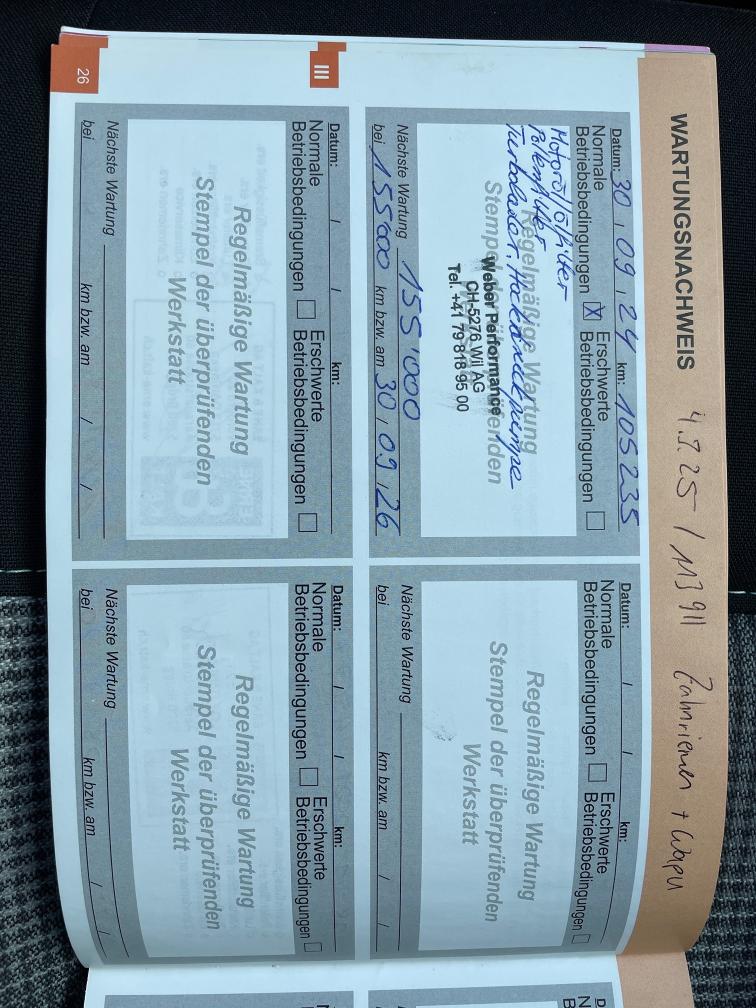 WARTUNGSNACHWEIS 4.7.25 / 113911 Zahnriemen + Wapu
Datum: 30 / 09 / 24 km: 105235
Normale Betriebsbedingungen X Erschwerte Betriebsbedingungen
Motoröl/Ölfilter
Pollenfilter
Regelmäßige Wartung
Stempel der überprüfenden
Weber Performance
CH-5276 Wil AG
Tel. +41 79 818 95 00
Nächste Wartung 155'000
bei 155000 km bzw. am 30 / 09 / 26
Datum: / / km:
Normale Betriebsbedingungen Erschwerte Betriebsbedingungen
Regelmäßige Wartung
Stempel der überprüfenden
Werkstatt
Nächste Wartung
bei km bzw. am / /
III
Datum: / / km:
Normale Betriebsbedingungen Erschwerte Betriebsbedingungen
Regelmäßige Wartung
Stempel der überprüfenden
Werkstatt
Nächste Wartung
bei km bzw. am / /
Datum: / / km:
Normale Betriebsbedingungen Erschwerte Betriebsbedingungen
Regelmäßige Wartung
Stempel der überprüfenden
Werkstatt
Nächste Wartung
bei km bzw. am / /
26